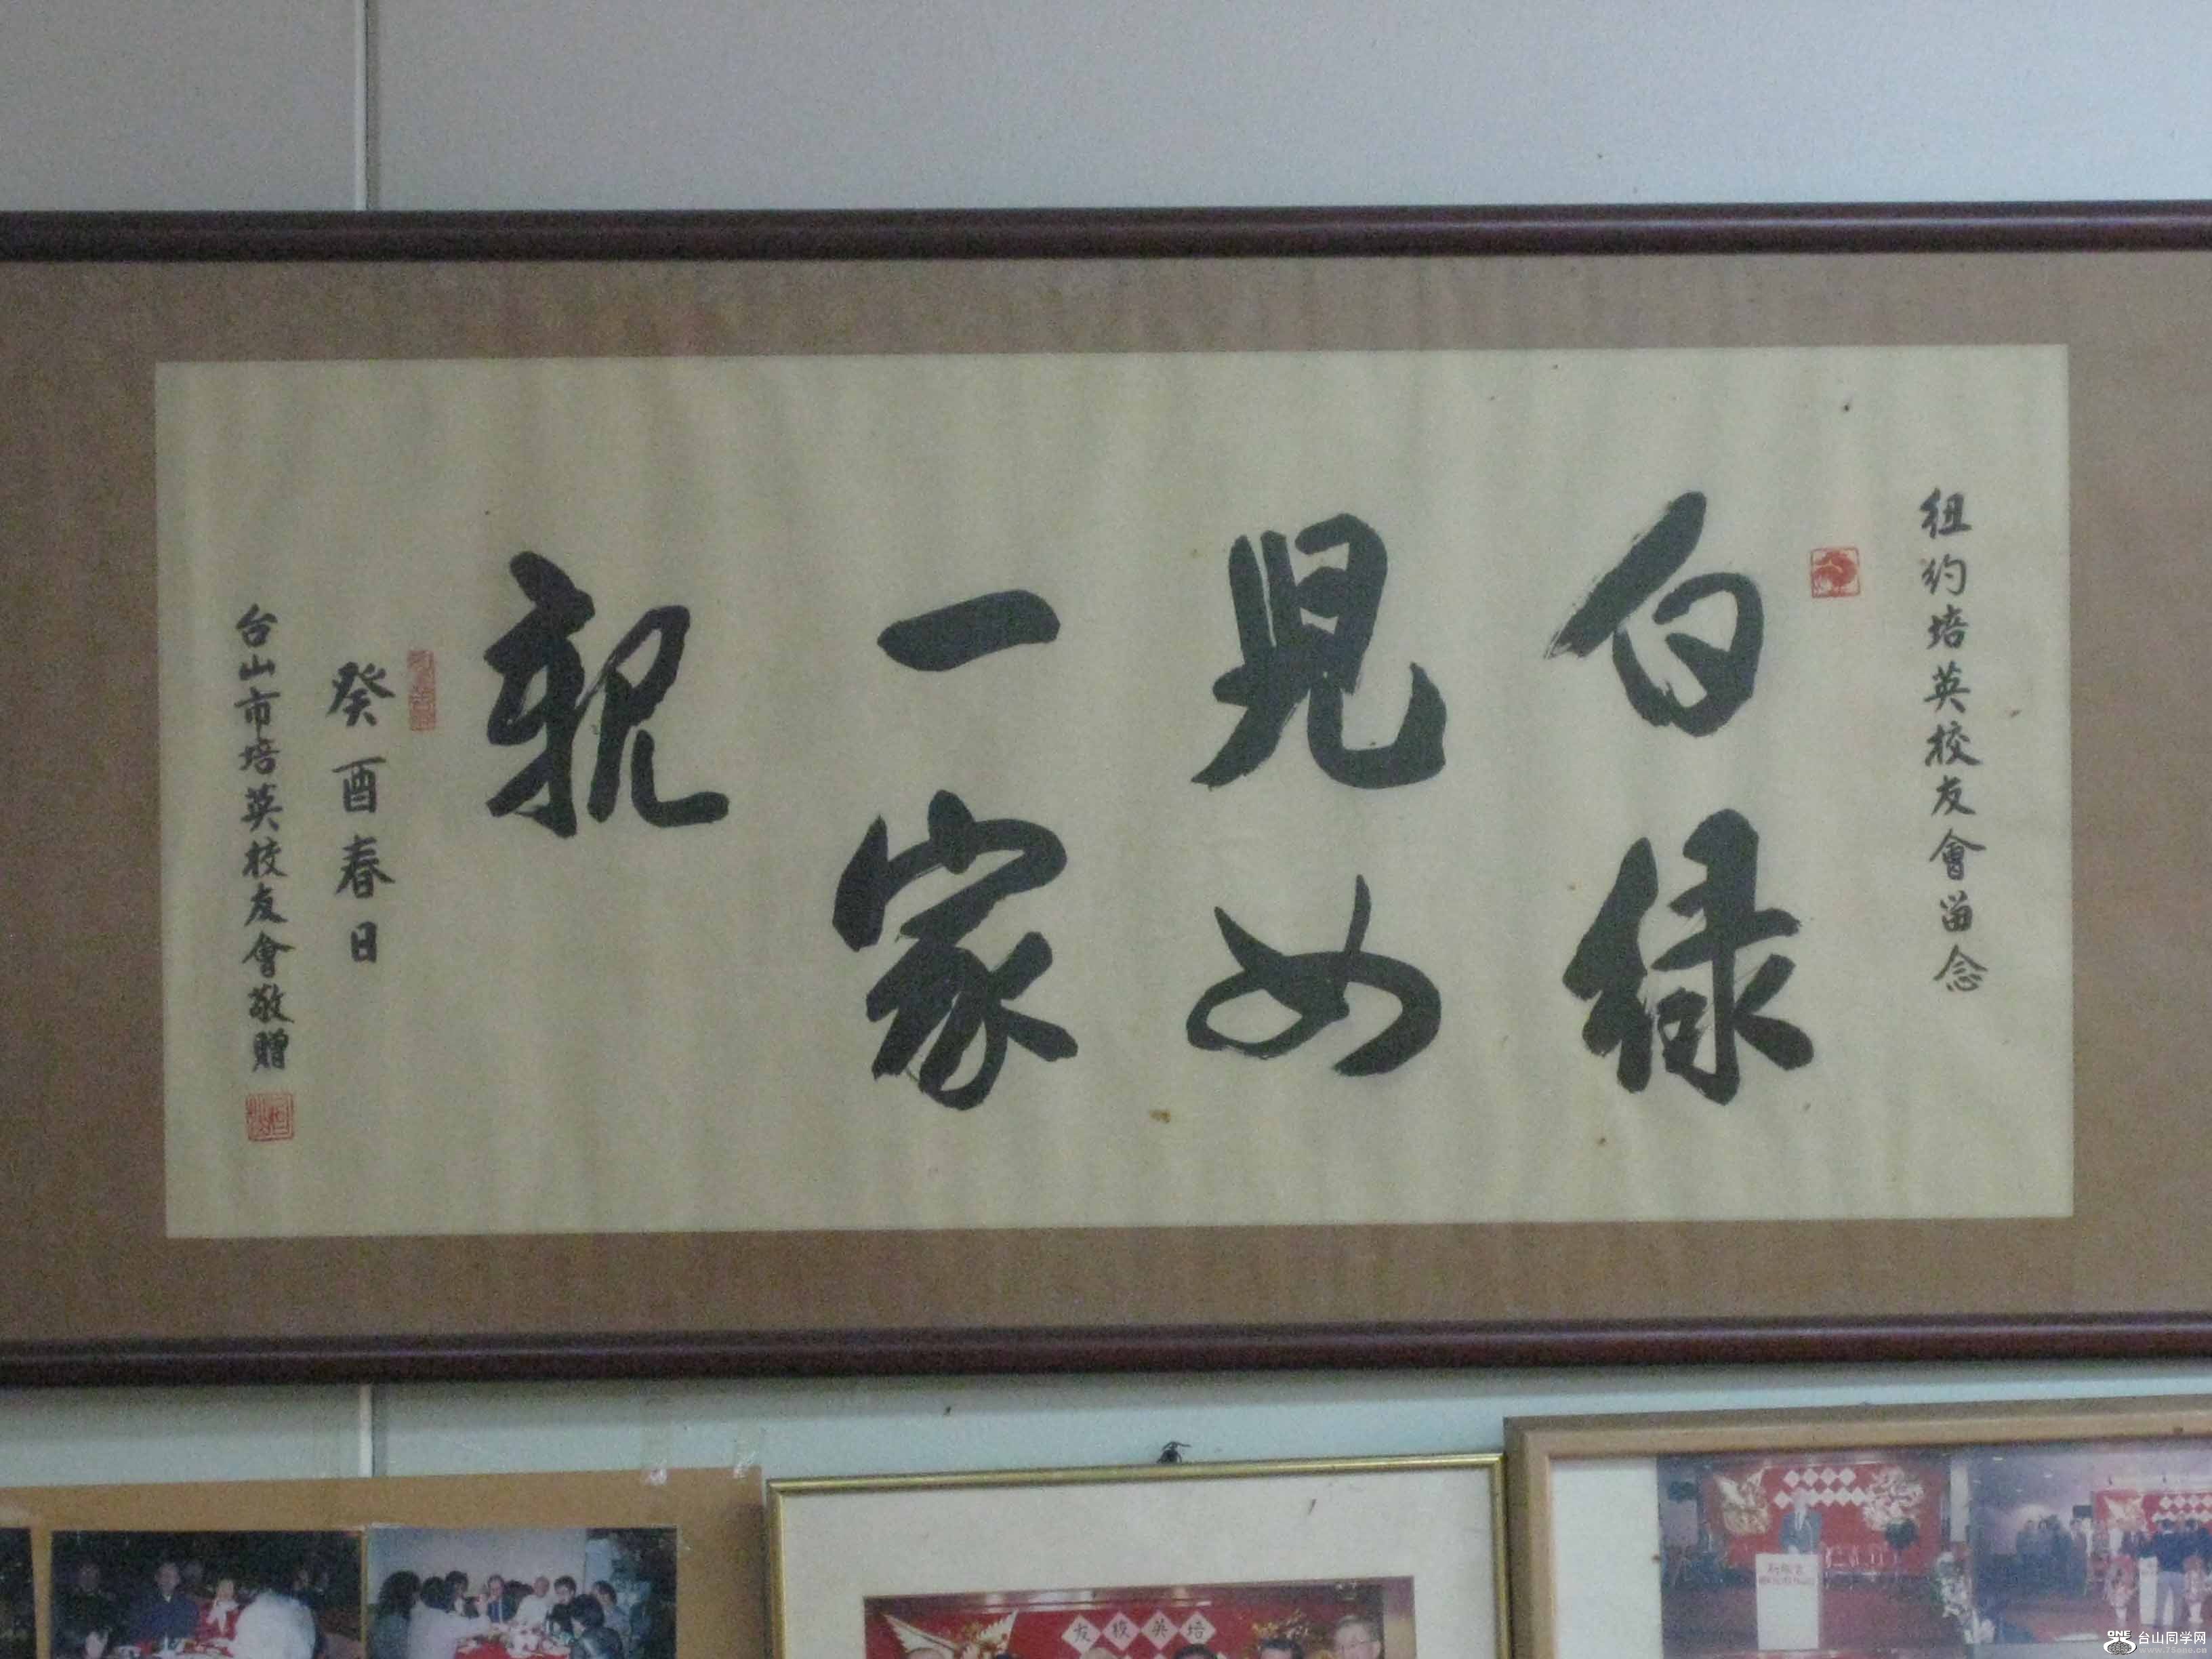 紐約培英校友會畄念
白綠
見如
一家
親
癸酉春日
台山市培英校友會敬贈
友校英培
台山同学网